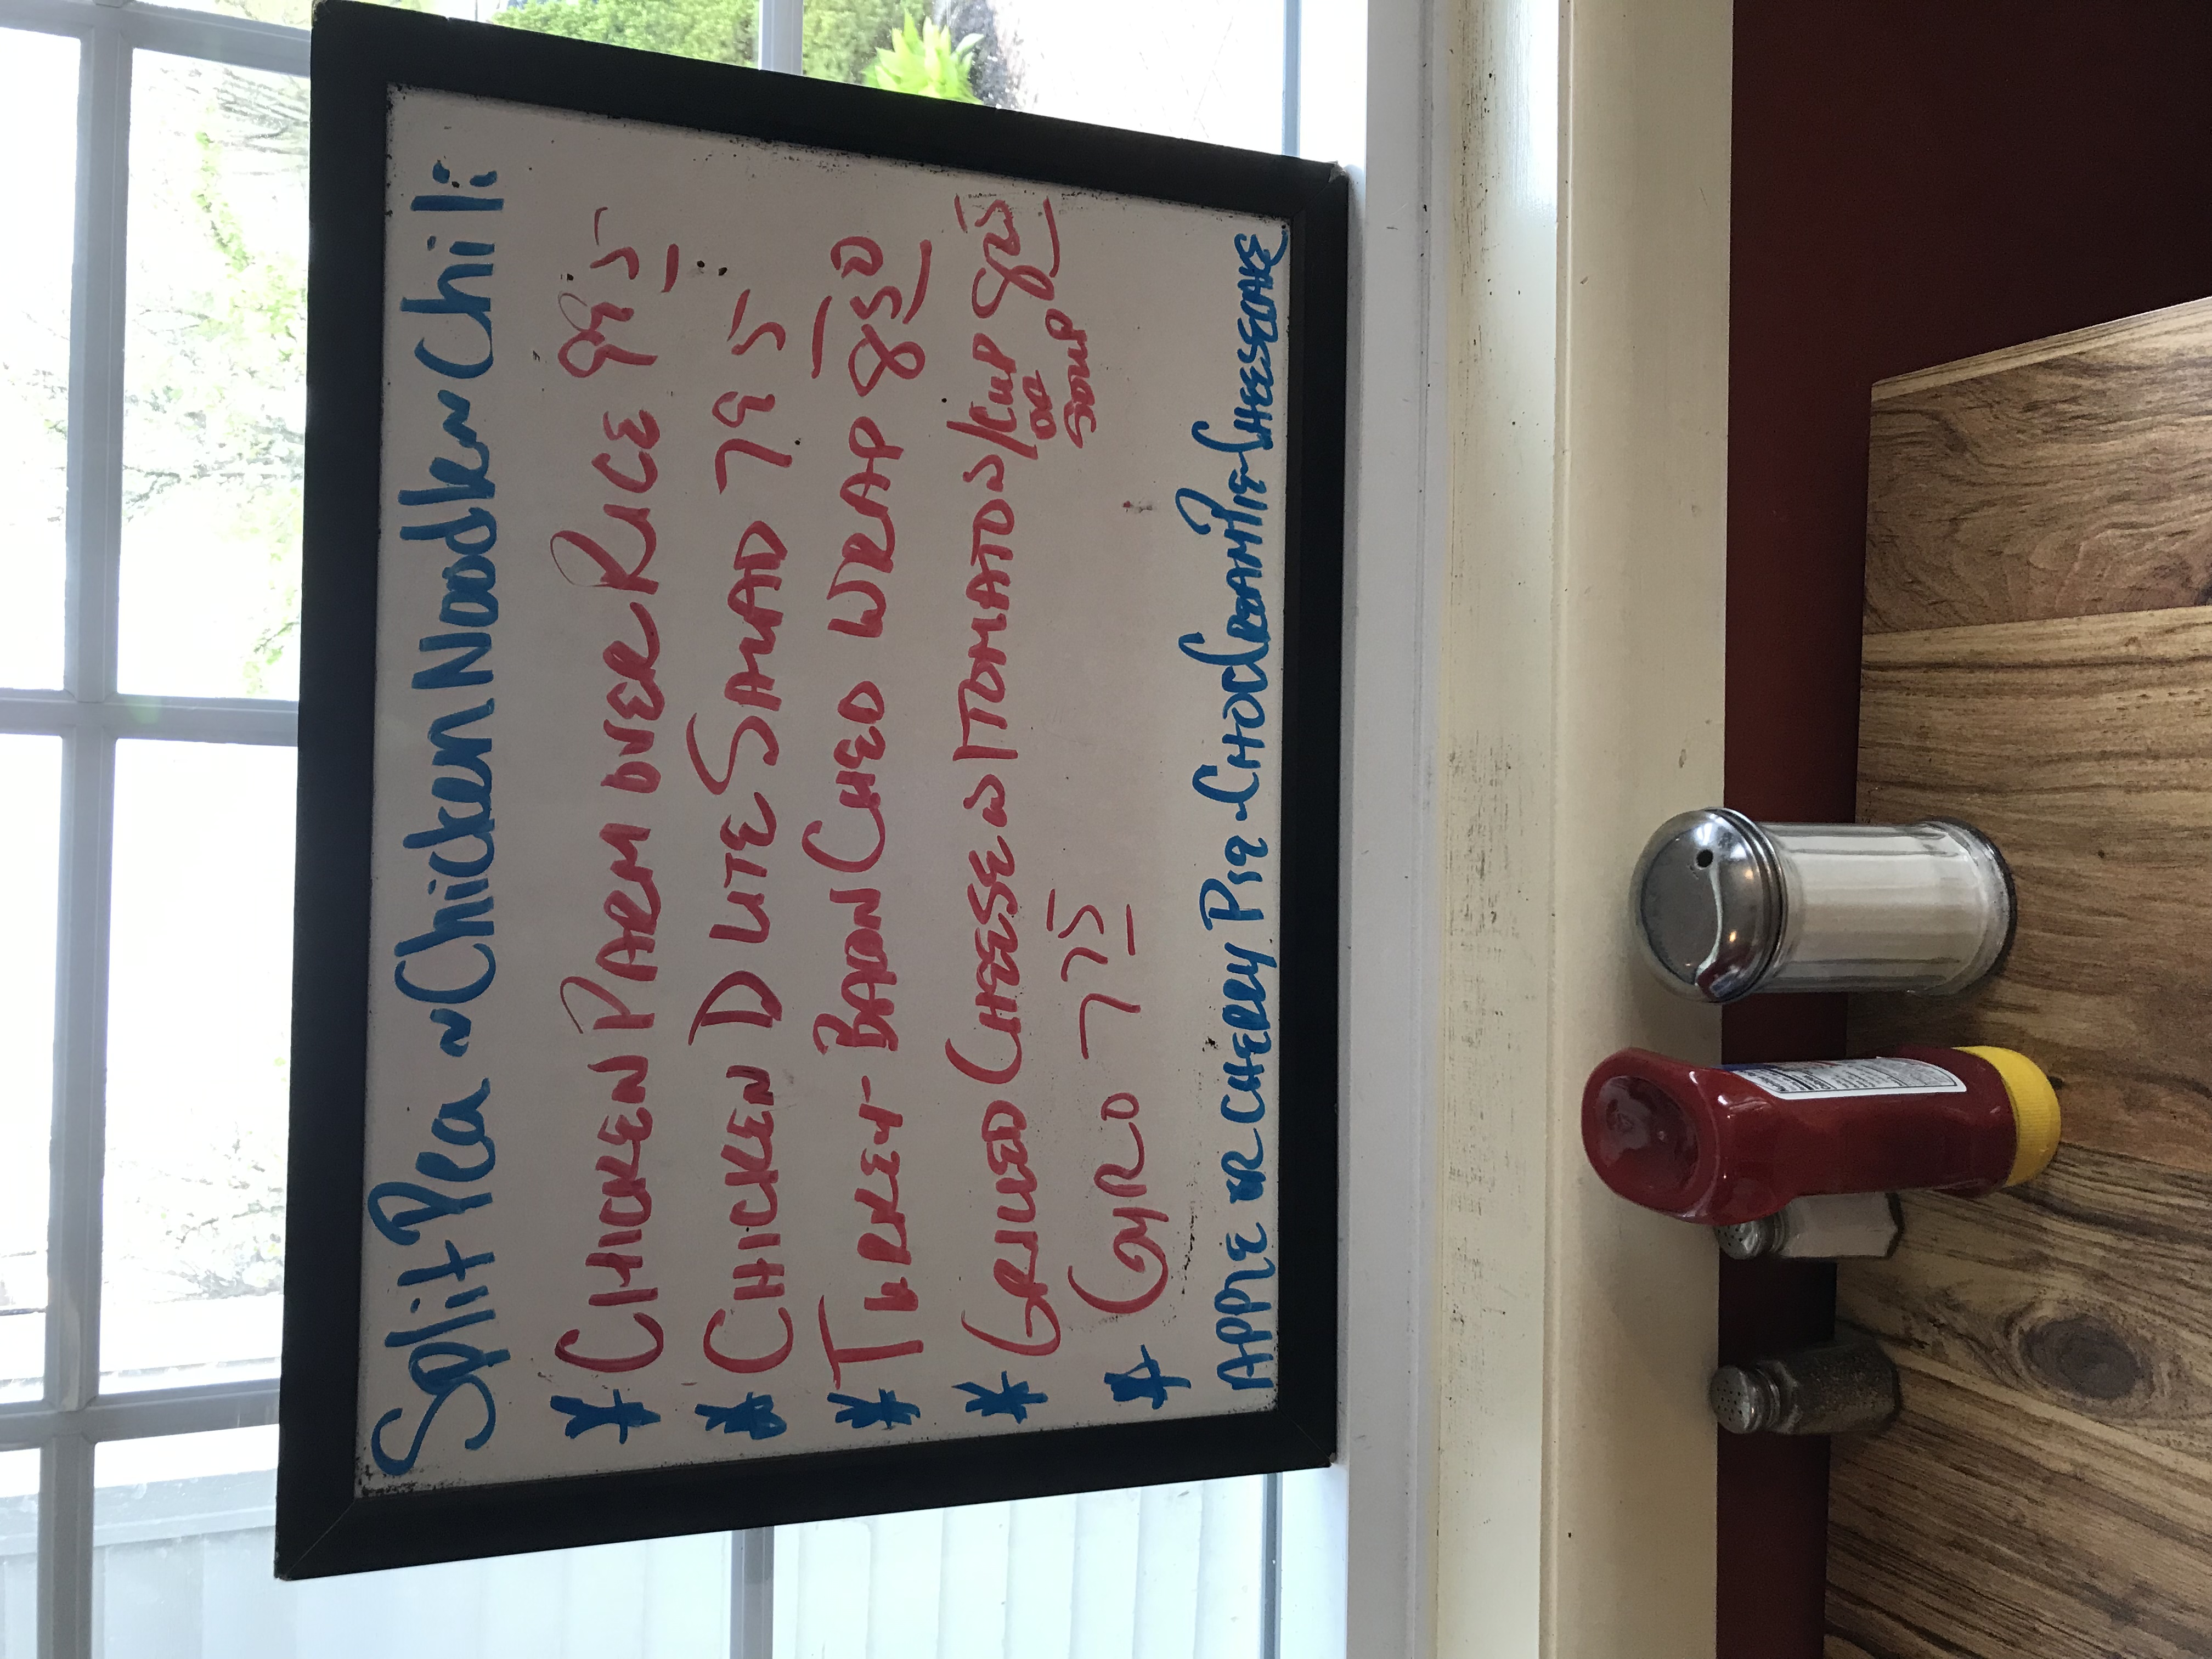 Split Pea ~ Chicken Noodle ~ Chili
* CHICKEN PARM OVER RICE 995
* CHICKEN D LITE SALAD 795
* TURKEY- BACON CHED WRAP 850
* GRILLED CHEESE W/TOMATO W/CUP OF SOUP 825
* GYRO 775
APPLE OR CHERRY PIE ~ CHOC CREAM PIE ~ CHEESECAKE